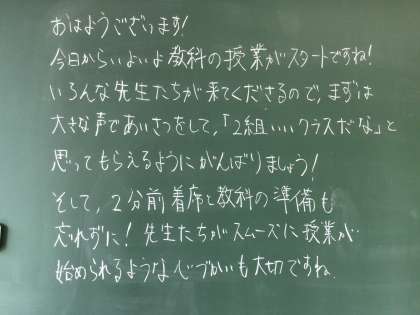 おはようございます!
今日からいよいよ教科の授業がスタートですね!
いろんな先生たちが来てくださるので、まずは
大きな声であいさつをして、「2組いいクラスだな」と
思ってもらえるようにがんばりましょう!
そして、2分前着席と教科の準備も
忘れずに!先生たちがスムーズに授業が
始められるような心づかいも大切ですね。